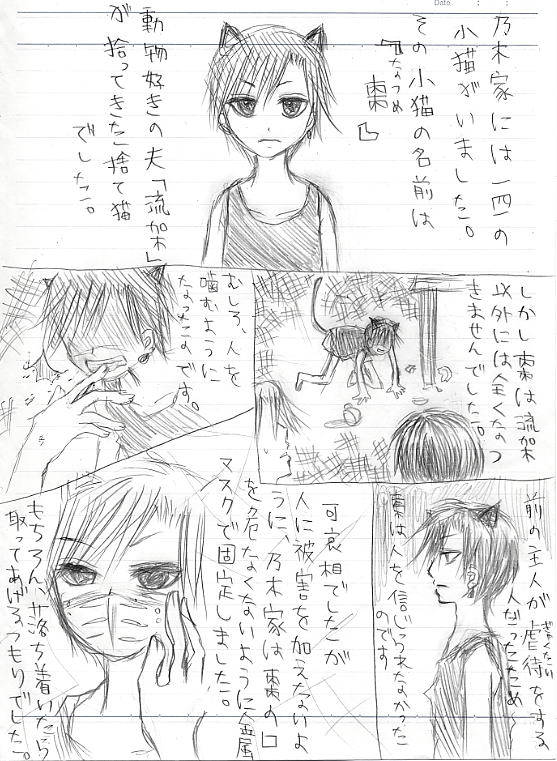 Date
乃木家には一匹の
小猫がいました。
その小猫の名前は
『棗』
なつめ
動物好きの夫「流架」
が拾ってきた捨て猫
でした。
しかし棗は流架
以外には全くなつ
きませんでした。
むしろ、人を
噛むように
なったのです。
前の主人が虐待をする
ぎゃくたい
人だったため
棗は人を信じられなかった
のです
可哀相でしたが
人に被害を加えないよ
うに、乃木家は棗の口
を危なくないように金属
マスクで固定しました。
もちろん、落ち着いたら
取ってあげるつもりでした。